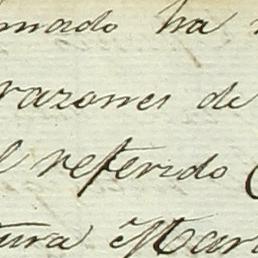 mado ha
razones de
l referido
tura Mar